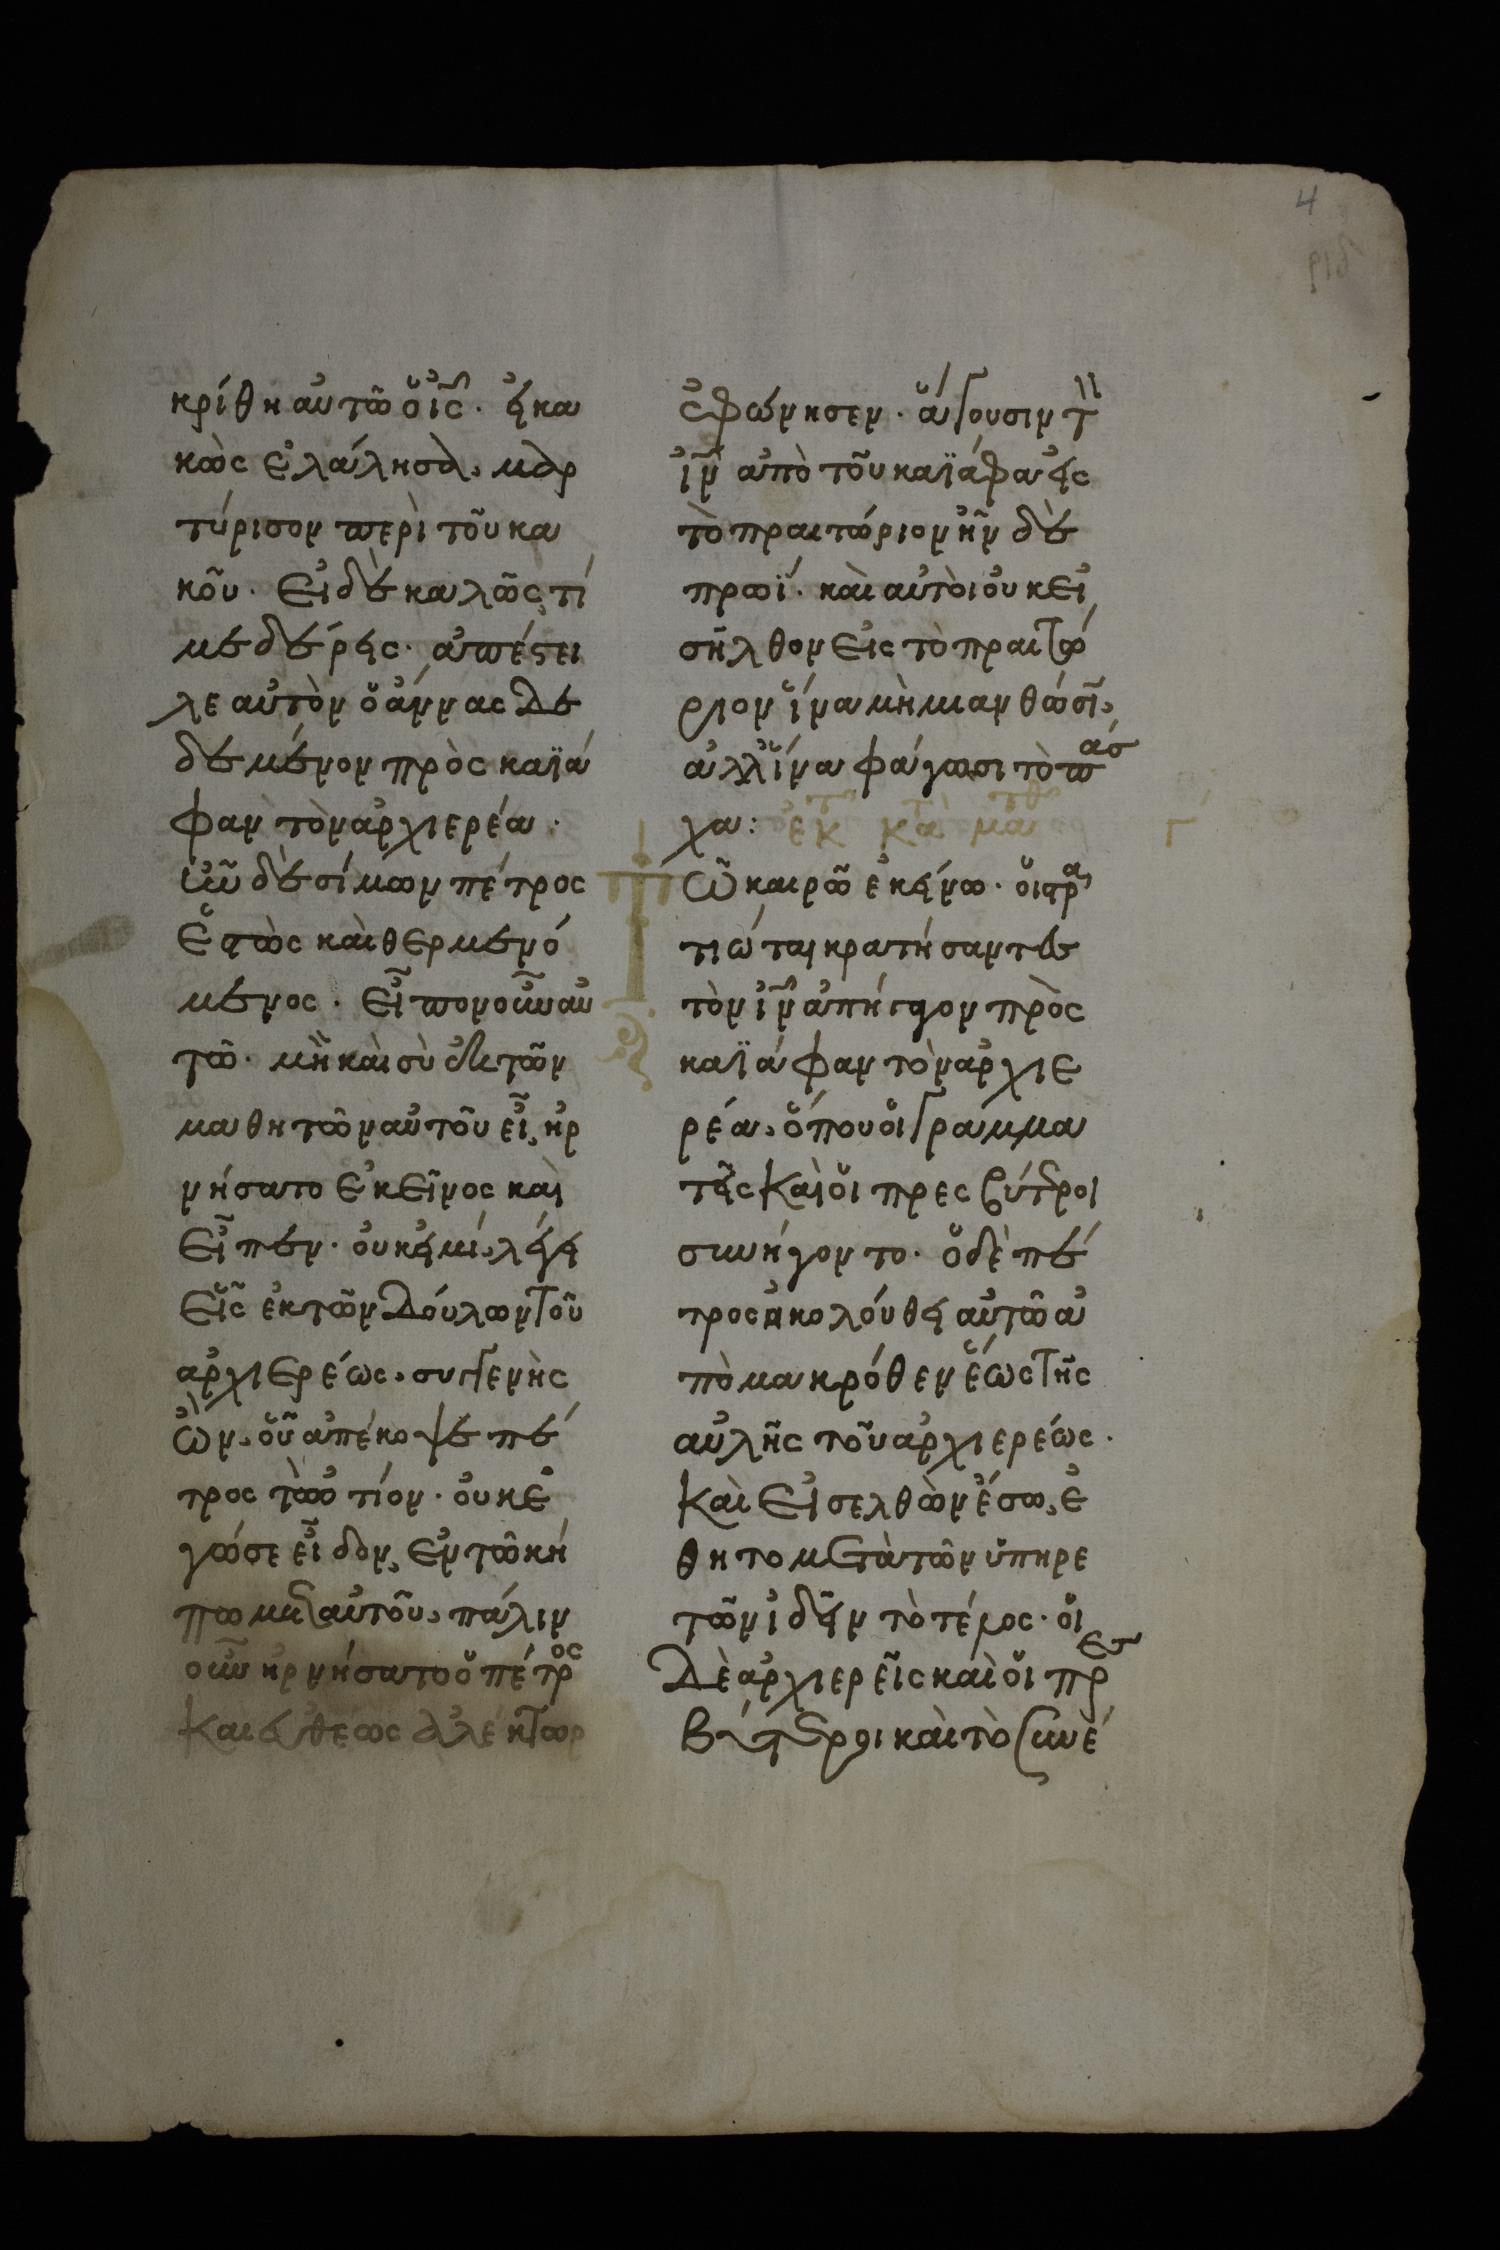 4
κρίθη αὐτῶ ὁ ἰς̄. εἰ κα
κῶς ἐλάλησα, μαρ
τύρισον περὶ τοῦ κα
κοῦ. εἰ δὲ καλῶς, τί
με δέρεις. ἀπέστει
λε αὐτὸν ὁ ἄννας δε
δεμένον πρὸς καϊά
φαν τὸν ἀρχιερέα.
ἦν δὲ σίμων πέτρος
ἑστὼς καὶ θερμενό
μενος. εἶπον οὖν αὐ
τῶ. μὴ καὶ σὺ ἐκ τῶν
μαθητῶν αὐτοῦ εἶ, ἠρ
νήσατο ἐκεῖνος καὶ
εἶπεν. οὐκ εἰμί, λέγει
εἷς ἐκ τῶν δούλων τοῦ
ἀρχιερέως, συγγενὴς
ὢν, οὗ ἀπέκοψε πέ
τρος τὸ ὠτίον. οὐκ ἐ
γώ σε εἶδον, ἐν τῶ κή
πω μετ αὐτοῦ, πάλιν
οὖν ἠρνήσατο ὁ πέτρος
καὶ εὐθέως ἀλέκτωρ
ἐφώνησεν. ἄγουσιν τὸν
ἰν̄ ἀπὸ τοῦ καϊάφα εἰς
τὸ πραιτώριον ἦν δὲ
πρωΐ. καὶ αὐτοὶ οὐκ εἰ
σῆλθον εἰς τὸ πραιτώ
ριον ἵνα μὴ μιανθῶσιν,
ἀλλ ἵνα φάγωσι τὸ πάσ
χα: ἐκ τοῦ κατὰματθ
Τῶ καιρῶ ἐκείνω. οἱ στρα
τιῶται κρατήσαντες
τὸν ἰν̄ ἀπήγαγον πρὸς
καϊάφαν τὸν ἀρχιε
ρέα, ὅπου οἱ γραμμα
τεῖς καὶ οἱ πρεσβύτεροι
συνήγοντο. ὁ δὲ πέ
τρος ἠκολούθει αὐτῶ ἀ
πὸ μακρόθεν ἕως τῆς
αὐλῆς τοῦ ἀρχιερέως.
καὶ εἰσελθὼν ἔσω, ἐ
θητο μετὰ τῶν ὑπηρε
τῶν ἰδεῖν τὸ τέλος. οἱ
δὲ ἀρχιερεῖς καὶ οἱ πρεσ
βύτεροι καὶ τὸ συνέ